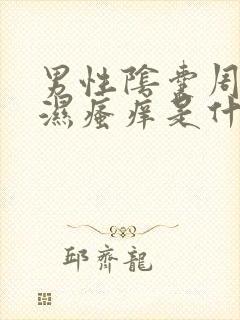 男性陰囊周
濕瘙痒是什
邱齊龍